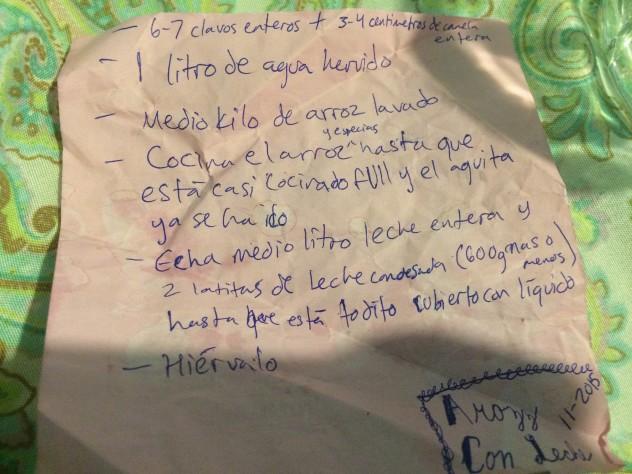 - 6-7 clavos enteros + 3-4 centimetros de canela
entera
- 1 litro de agua hervido
- Medio kilo de arroz lavado
y especias
- Cocina el arroz ^ hasta que
está casi cocinado full y el aguita
ya se ha ido
- Echa medio litro leche entera y
2 latitas de leche condesada (600g mas o
menos)
hasta que está todito cubierto con líquido
- Hiérvalo
Arozz 11-2015
Con Leche